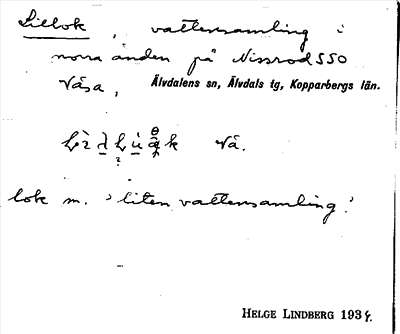 Lillok, vattensamling i
norra änden på Nissrod SSO
Våsa, Älvdalens sn, Älvdals tg, Kopparbergs län.
k Vå.
lok m. 'liten vattensamling'.
HELGE LINDBERG 193